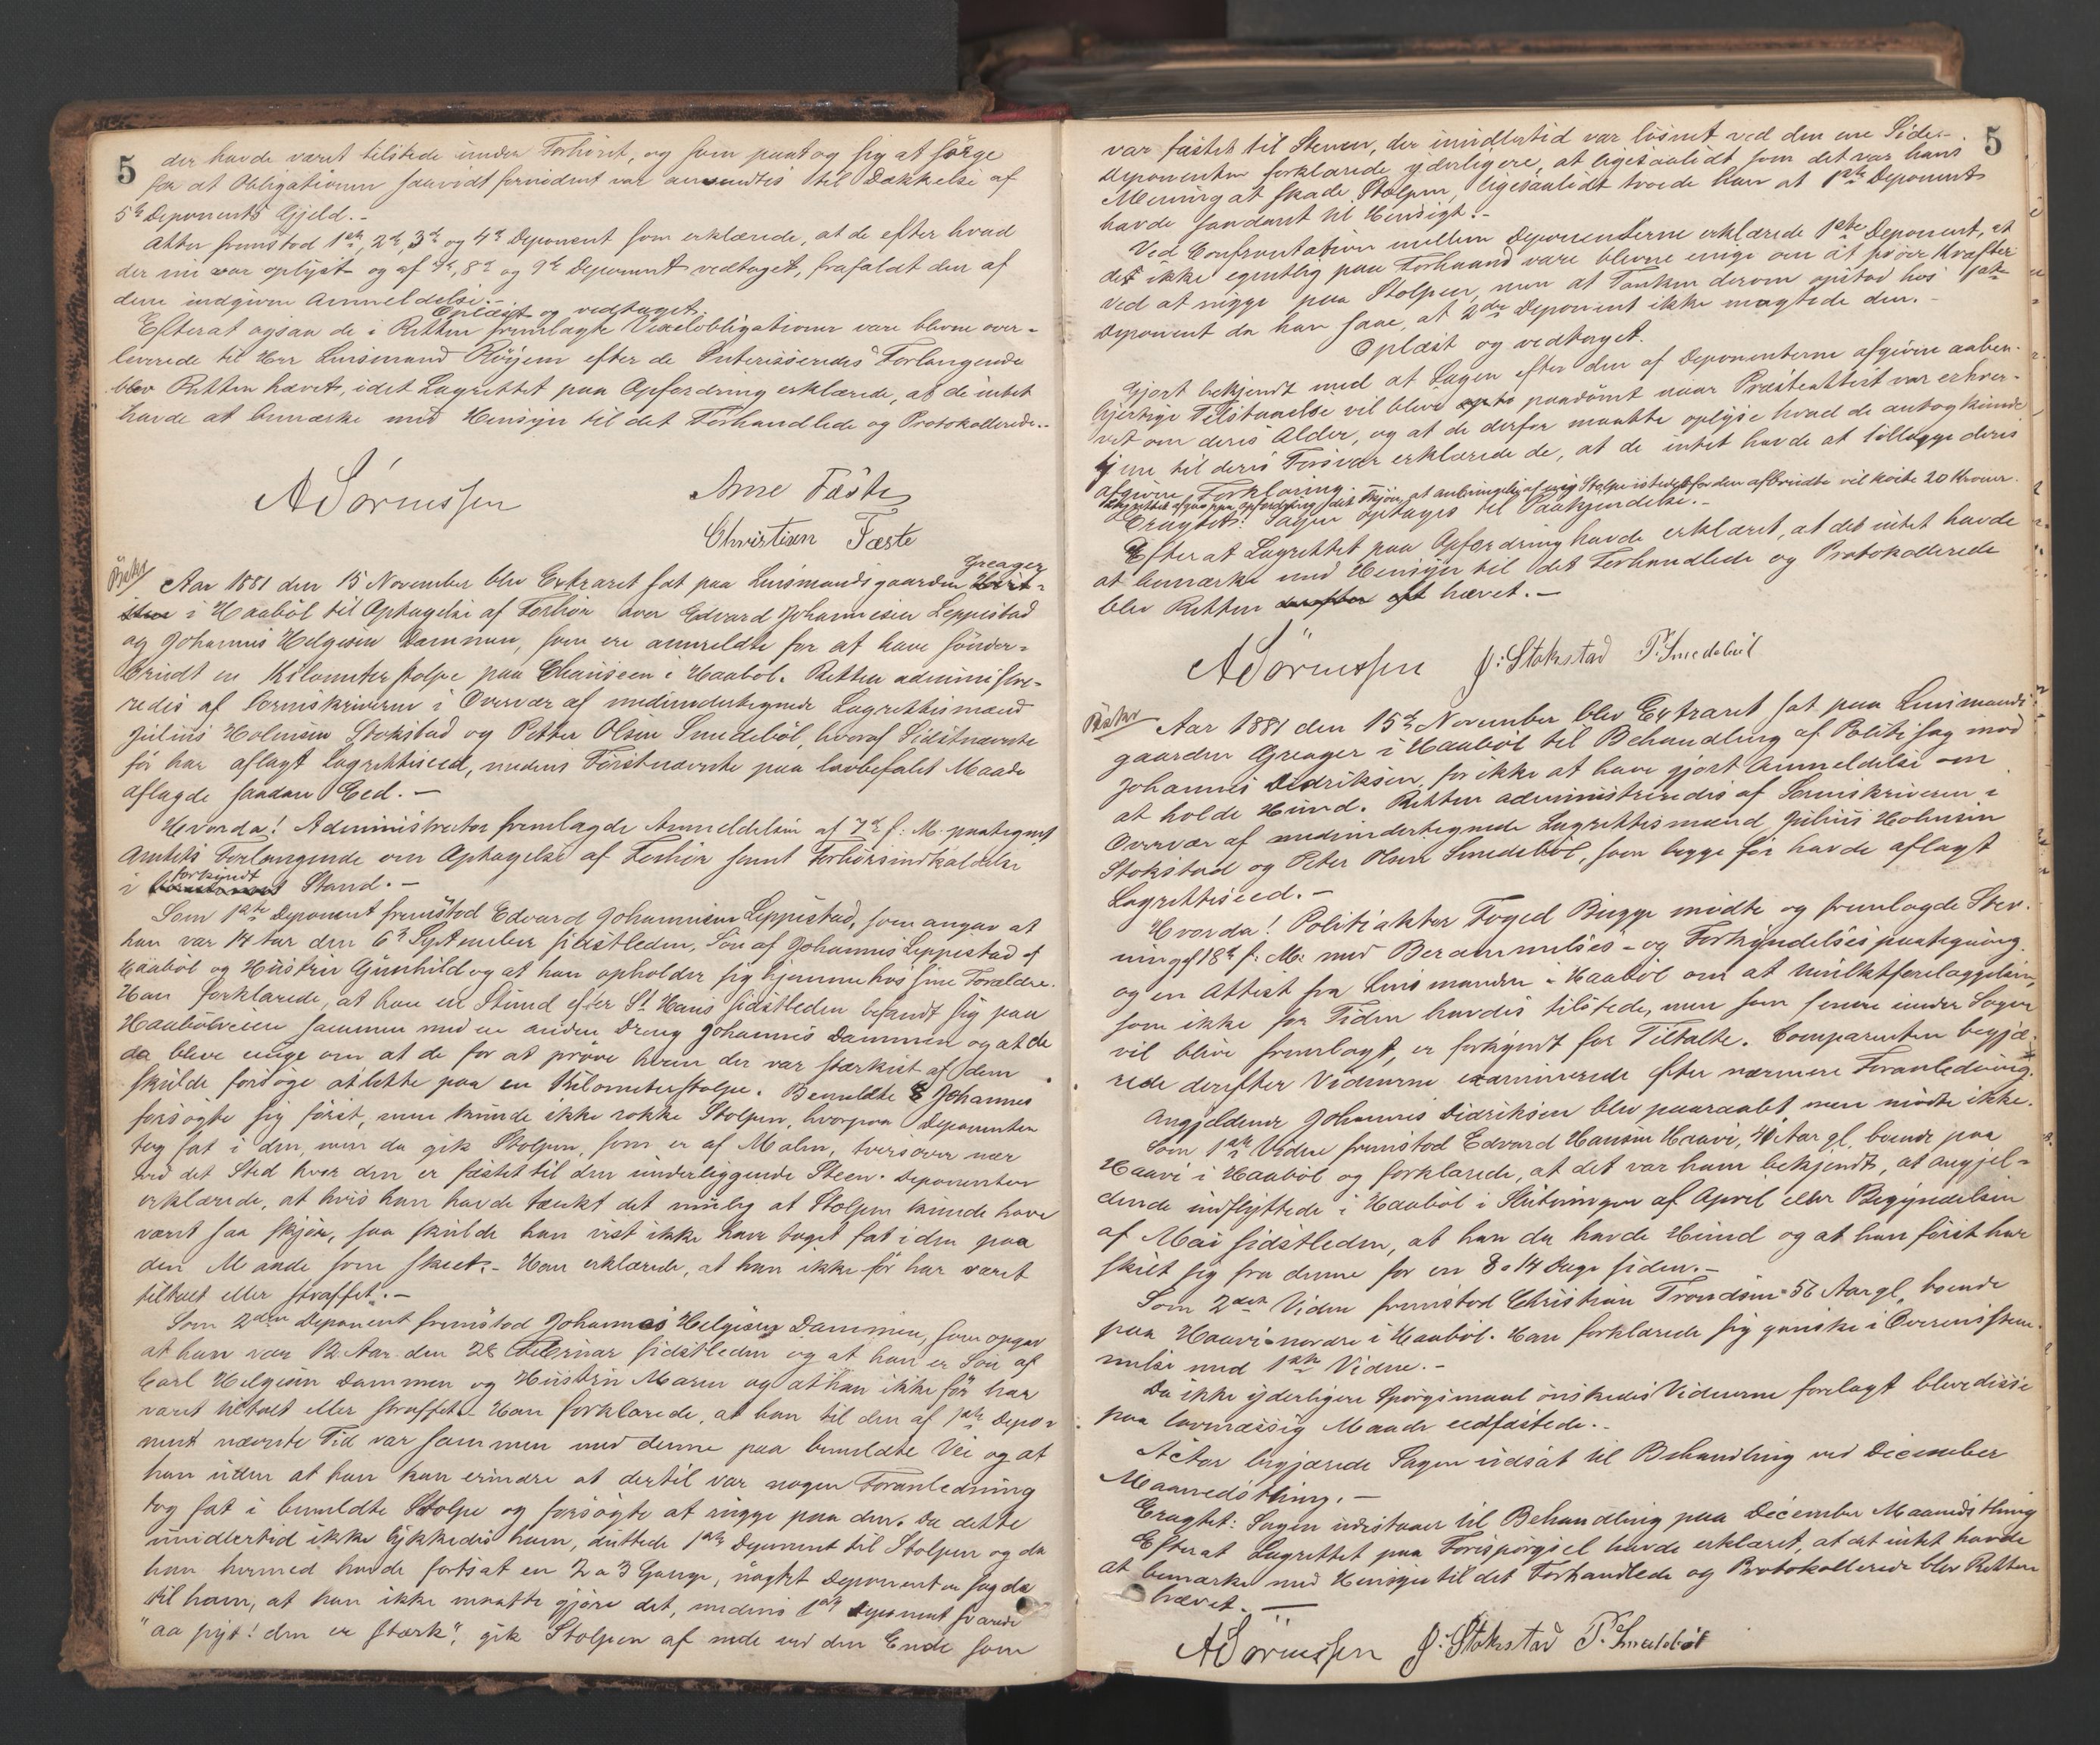 5
der havde været tilstede under Forhøret, og som paatog sig at sørge
for at Obligationen saavidt fornödent var anvendtes til Dækkelse af
5te Deponents Gjeld.-
Atter fremstod 1ste, 2de, 3de og 4de Deponent som erklærede, at de efter hvad
der nu var oplyst og af 7de, 8de og 9de Deponent vedtaget, frafaldt den af
dem indgivne Anmeldelse.-
Oplæst og vedtaget.
Efterat ogsaa de i Retten fremlagte Vexelobligationer vare blevne over-
leverede til Herr Lensmand Röyem efter de Interesseredes Forlangende
blev Retten hævet, idet Lagrettet paa Opfordring erklærede, at de intet
havde at bemærke med Hensyn til det Forhandlede og Protokollerede.-
A Sörenssen
Arne Fäste
Christian Fæste
Aar 1881 den 15 November blev Extraret sat paa Lensmandsgaarden Greager
i Haabøl til Optagelse af Forhör over Edvard Johannesen Leppestad
og Johannes Helgesen Dammen, som ere anmeldte for at have sönder-
brudt en Kilometerstolpe paa Chauseen i Haaböl. Retten administre-
redes af Sorenskriveren i Overvær af medundertegnede Lagrettesmænd
Julius Holmsen Stokstad og Petter Olsen Smedeböl, hvoraf Sidstnævnte
för har aflagt Lagrettiseed, medens Förstnævnte paa lovbefalet Maade
aflagde saadan Eed.-
Hvorda! Administrator fremlagde Anmeldelsen af 7de f: M: paategnet
Amtets Forlangende om Optagelse af Forhör samt Forhörsindkaldelse
i forkyndt Stand.-
Som 1ste Deponent fremstod Edvard Johannesen Leppestad, som angav at
han var 14 Aar den 6te September sidstleden, Sön af Johannes Leppestad af
Haaböl og Hustru Gunhild og at han opholder sig hjemme hos sine Forældre.
Han forklarede, at han en Stund efter St Hans sidstleden befandt sig paa
Haabölveien sammen med en anden Dreng Johannes Dammen og at de
da bleve enige om at de for at pröve hvem der var stærkest af dem
skulde forsöge at lette paa en Kilometerstolpe. Bemeldte Johannes
forsögte sig först, men kunde ikke rokke Stolpen, hvorpaa Deponenten
tog fat i den, men da gik Stolpen, som er af Malm, tversover nær
ved det Sted hvor den er fæstet til den underliggende Steen. Deponenten
erklærede, at hvis han havde tænkt det mulig at Stolpen kunde have
været saa skjör, saa skulde han vist ikke have taget fat i den paa
den Maade som skeet.- Han erklærede, at han ikke för har været
tiltalt eller straffet.-
Som 2den Deponent fremstod Johannes Helgesen Dammen, som opgav
at han var 12 Aar den 28 Februar sidstleden og at han er Sön af
Carl Helgesen Dammen og Hustru Maren og at han ikke för har
været tiltalt eller straffet.- Han forklarede, at han til den af 1ste Depo-
nent nævnte Tid var sammen med denne paa bemeldte Vei og at
han uden at han kan erindre at dertil var nogen Foranledning
tog fat i bemeldte Stolpe og forsögte at rugge paa den. Da dette
imidlertid ikke lykkedes ham, sluttede 1ste Deponent til Stolpen og da
han hermed havde fortsat en 2 a 3 Gange, uagtet Deponenten sagde
til ham, at han ikke maatte gjöre det, medens 1ste Deponent svarede
"aa pyt! den er stærk", gik Stolpen af nede ved den Ende som
5
var fæstet til Stenen, der imidlertid var lösnet ved den ene Side.-
Deponenten forklarede yderligere, at ligesaalidt som det var hans
Mening at skade Stolpen, ligesaalidt troede han at 1ste Deponent
havde saadant til Hensigt.-
Ved Confrontation mellem Deponenterne erklærede 1ste Deponent, at
det ikke egentlig paa Forhaand vare blevne enige om at pröve Kræfter
ved at rugge paa Stolpen, men at Tanken derom opstod hos 1ste
Deponent da han saae, at 2den Deponent ikke magtede den.-
Oplæst og vedtaget.
Gjort bekjendt med at Sagen efter den af Deponenterne afgivne aaben-
hjertige Tilstaaelse vil blive paadömt naar Præsteattest var erhver-
vet om deres Alder, og at de derfor maatte oplyse hvad de antog kunde
tjene til deres Forsvar erklærede de, at de intet havde at tillægge deres
afgivne Forklaring.-
Lagrettet afgav paa Opfordring det Skjön, at anbringelse af en ny Stolpe istedetfor den afbrudte vil koste 20 Kroner.
Eragtet: Sagen optages til Paakjendelse.-
Efterat Lagrettet paa Opfordring havde erklæret, at det intet havde
at bemærke med Hensyn til det Forhandlede og Protokollerede
blev Retten hævet.-
A Sörenssen J: Stokstad P. Smedeböl
Aar 1881 den 15de November blev Extraret sat paa Lensmands
gaarden Greager i Haaböl til Behandling af Politisag mod
Johannes Didriksen, for ikke at have gjort Anmeldelse om
at holde Hund. Retten administreredes af Sorenskriveren i
Overvær af medundertegnede Lagrettesmænd Julius Holmsen
Stokstad og Peter Olsen Smedeböl, som begge för havde aflagt
Lagrettiseed.-
Hvorda! Politiaktor Foged Bugge mödte og fremlagde Stev-
ning af 18de f: M: med Berammelses- og Forkyndelsespaategning
og en Attest fra Lensmanden i Haaböl om at Mulktforelæggelsen,
som ikke for Tiden havdes tilstede, men som senere under Sagen
vil blive fremlagt, er forkyndt for Tiltalte. Comparenten begjæ-
rede derefter Vidnerne examinerede efter nærmere Foranledning.
Angjeldende Johannes Didriksen blev paaraabt men mödte ikke.
Som 1ste Vidne fremstod Edvard Hansen Haavi, 41 Aar gl, boende paa
Haavi i Haaböl og forklarede, at det var ham bekjendt, at angjel-
dende indflyttede i Haaböl i Slutningen af April eller Begyndelsen
af Mai sidstleden, at han da havde Hund og at han först har
skilt sig fra denne for en 8 a 14 Dage siden.-
Som 2det Vidne fremstod Christian Trondsen 56 Aar gl, boende
paa Haavi nordre i Haaböl. Han forklarede sig ganske i Overensstem-
melse med 1ste Vidne.-
Da ikke yderligere Spörgsmaal önskedes Vidnerne forelagt bleve disse
paa lovmæssig Maade eedfæstede.-
Actor begjærede Sagen udsat til Behandling ved December
Maanedsthing.-
Eragtet: Sagen udstaaer til Behandling paa December Maanedsthing
Efterat Lagrettet paa Forespörgsel havde erklæret, at det intet havde
at bemærke med Hensyn til det Forhandlede og Protokollerede blev Retten
hævet.-
A Sörenssen J: Stokstad P. Smedeböl